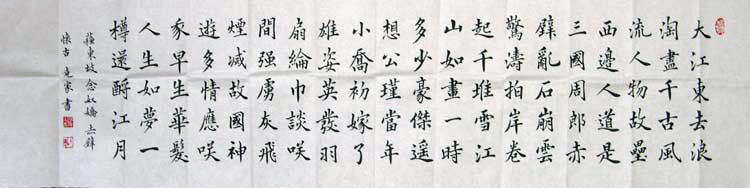 大江東去浪
淘盡千古風
流人物故壘
西邊人道是
三國周郎赤
壁亂石崩雲
驚濤拍岸卷
起千堆雪江
山如畫一時
多少豪傑遥
想公瑾當年
小喬初嫁了
雄姿英發羽
扇綸巾談咲
間强虜灰飛
煙滅故國神
遊多情應咲
我早生華髮
人生如夢一
樽還酹江月
蘇東坡念奴嬌赤壁
懷古 家書